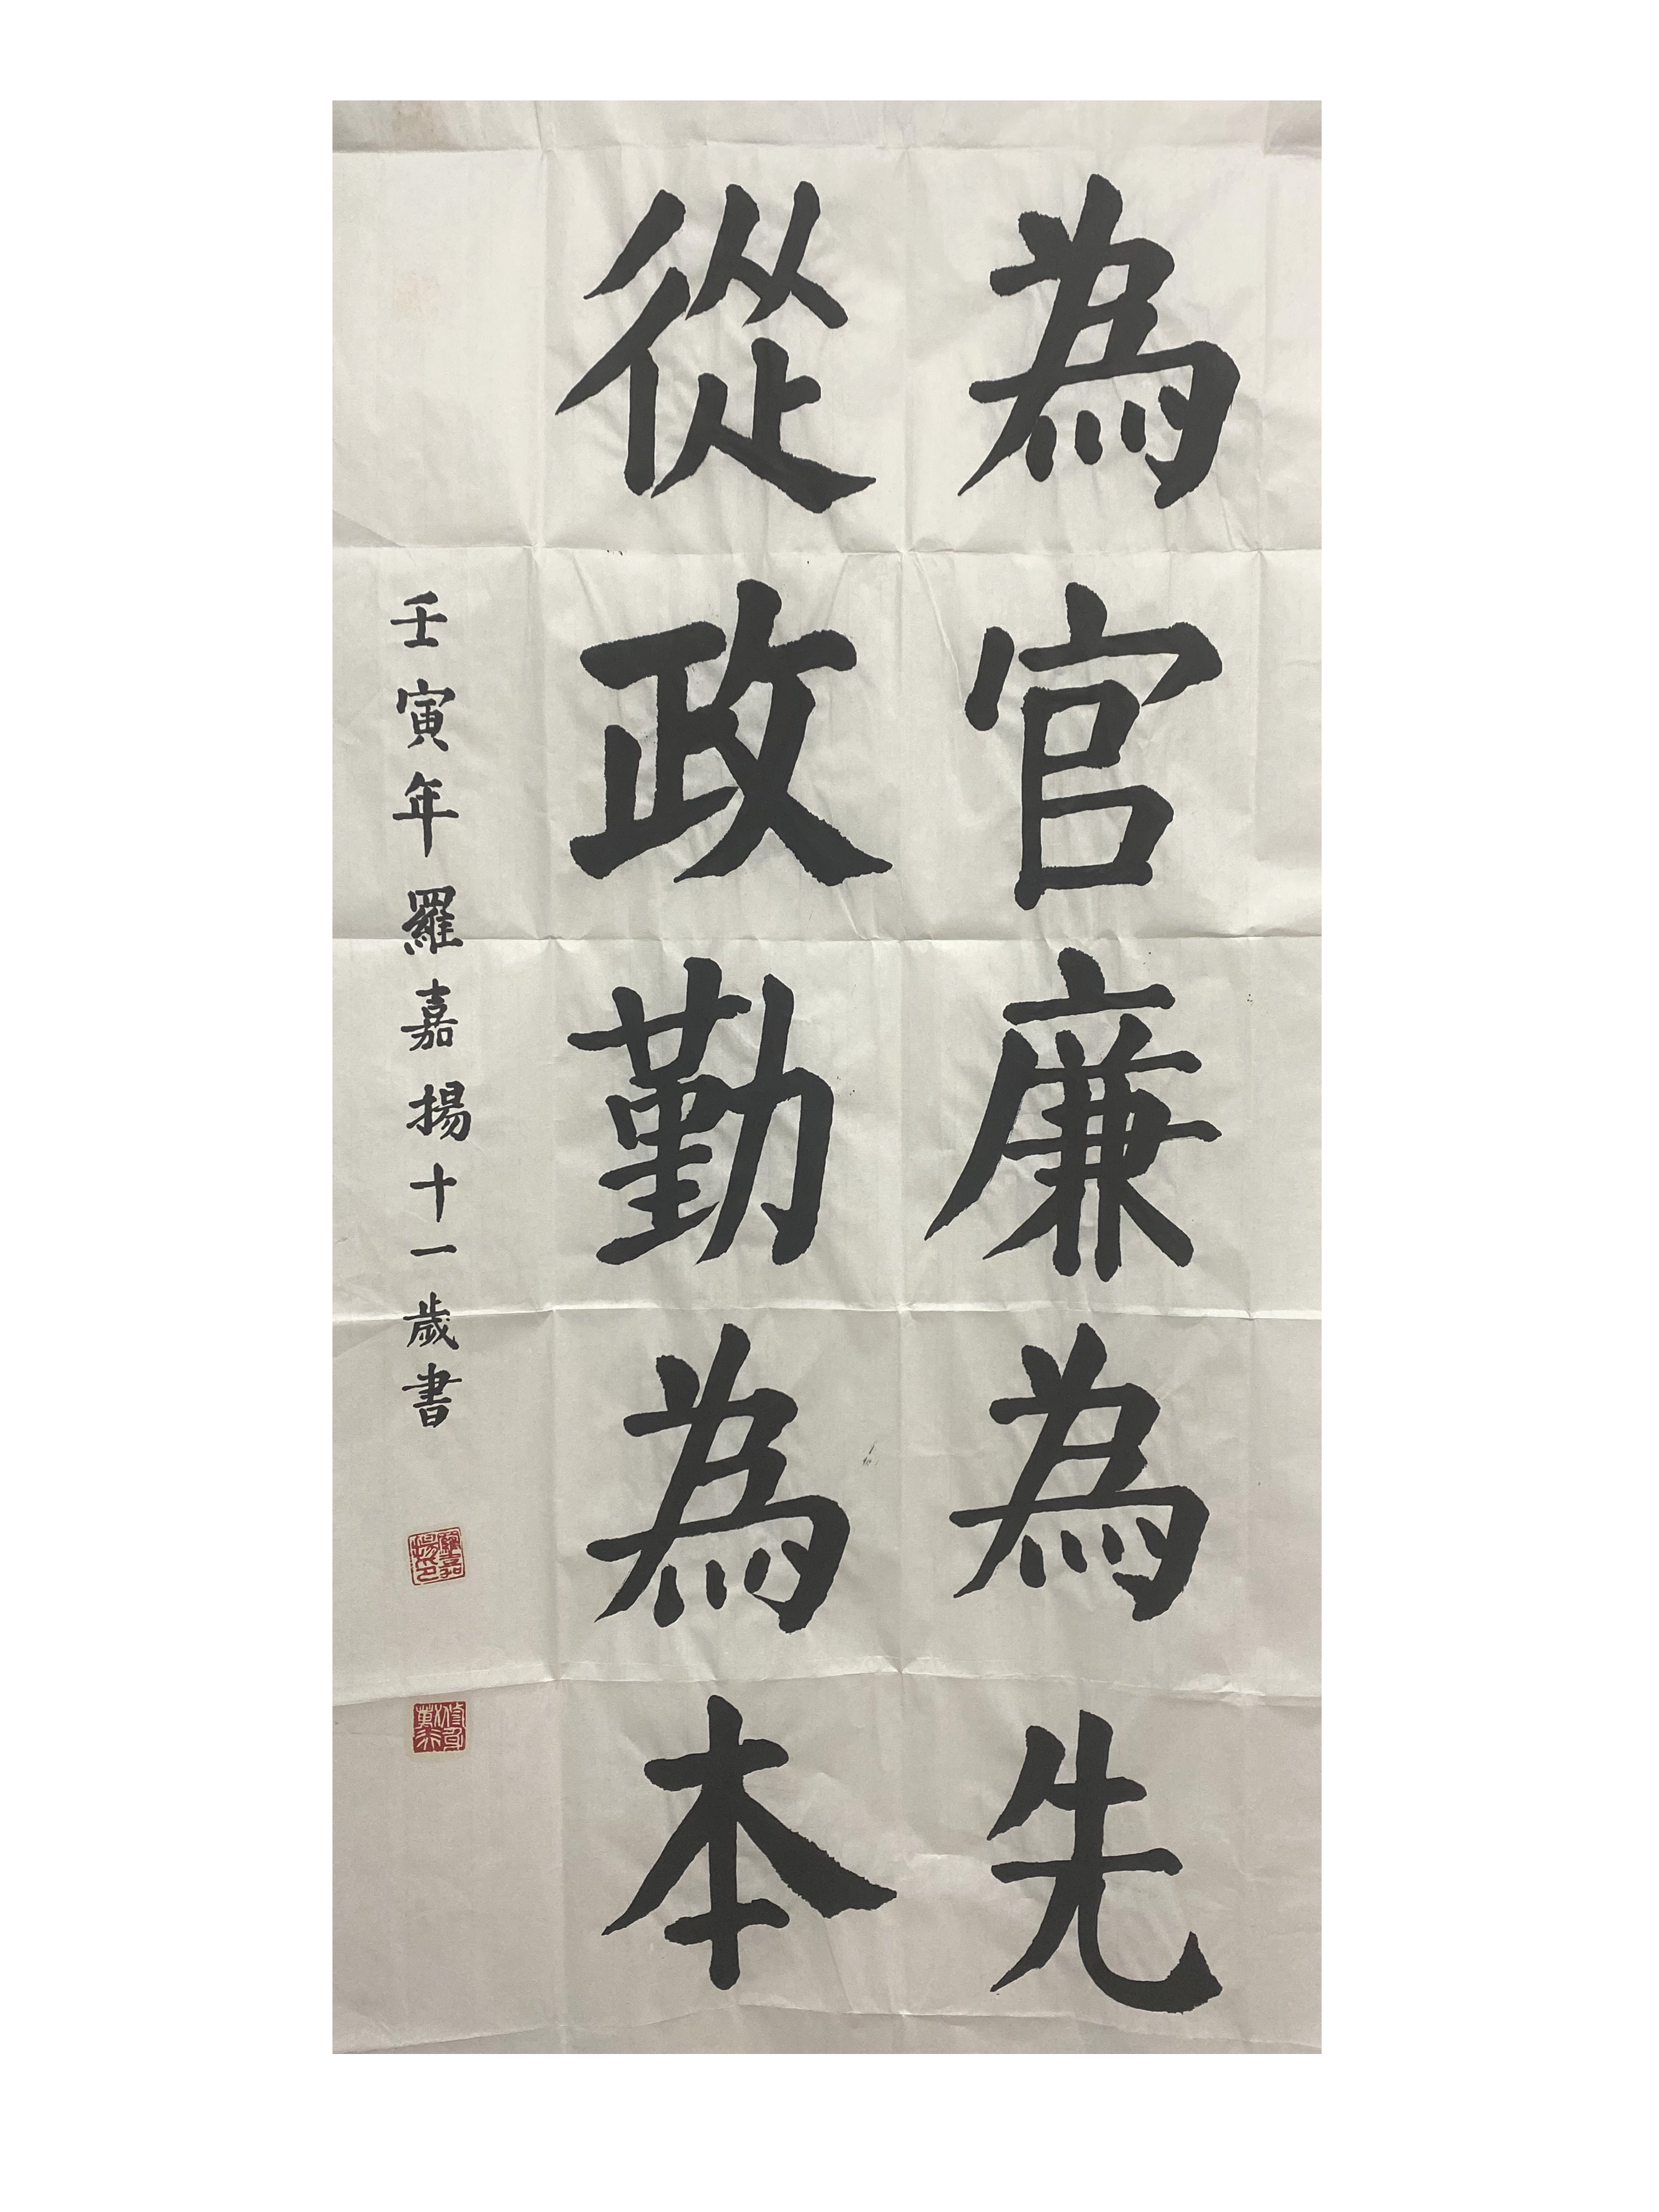 為官廉為先
從政勤為本
壬寅年羅嘉揚十一歲書
羅嘉揚印